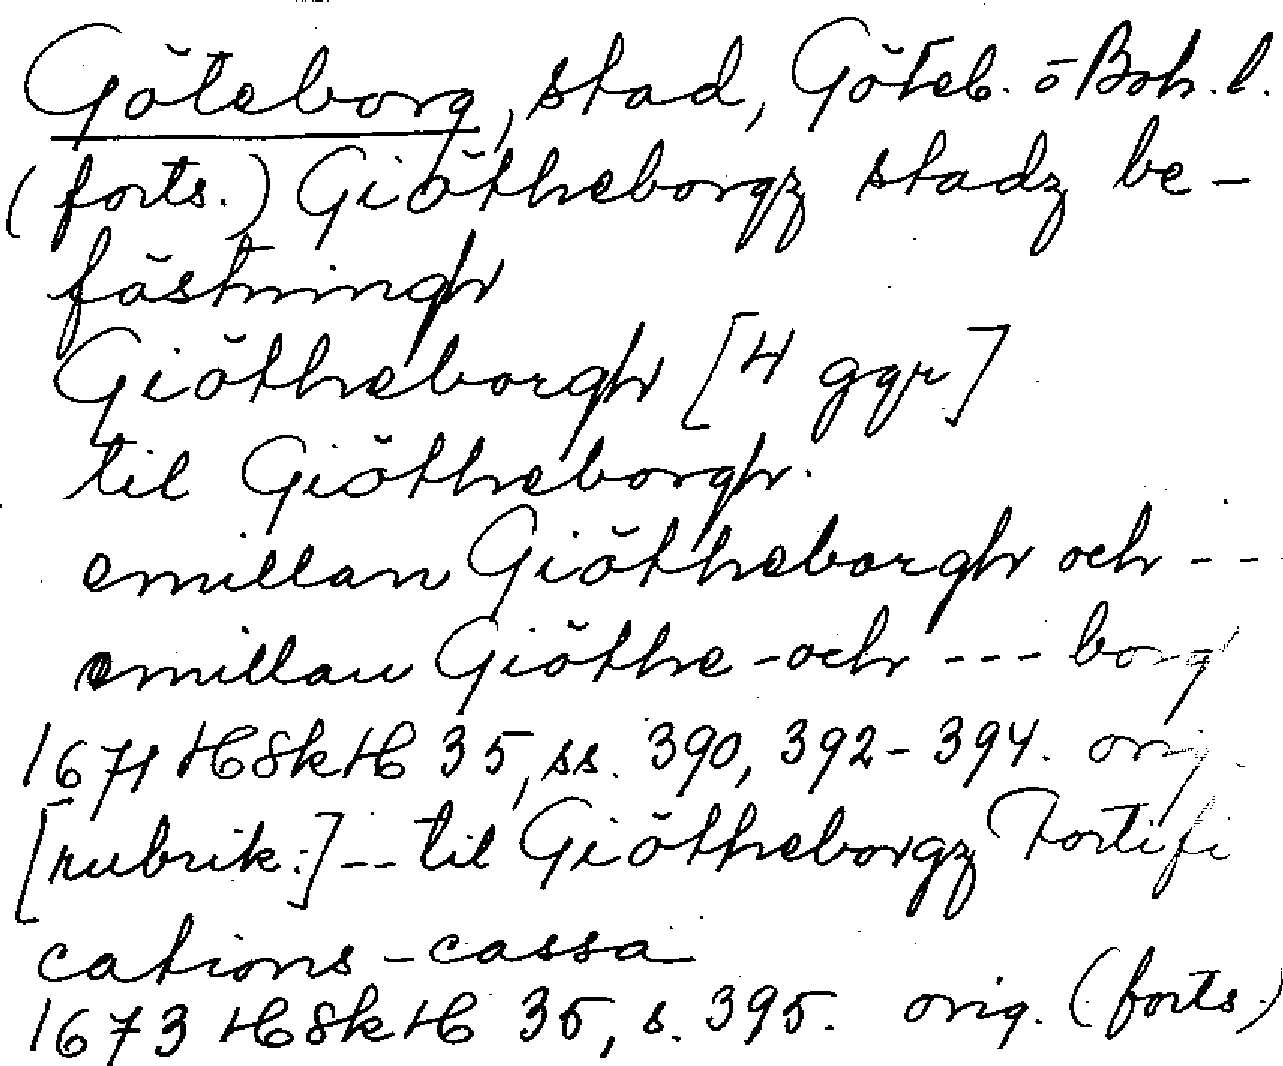 Göteborg, stad, Göteb. o Boh. l.
(forts.) Giötheborgz stadz be-
fästningh
Giötheborgh [4 ggr]
til Giötheborgh.
emillan Giötheborgh och ---
emillan Giöthe - och --- borg
1671 HSkH 35, ss. 390, 392-394. orig.
[rubrik:] -- til Giötheborgz Fortifi
cations-cassa
1673 HSkH 35, s. 395. orig. (forts.)